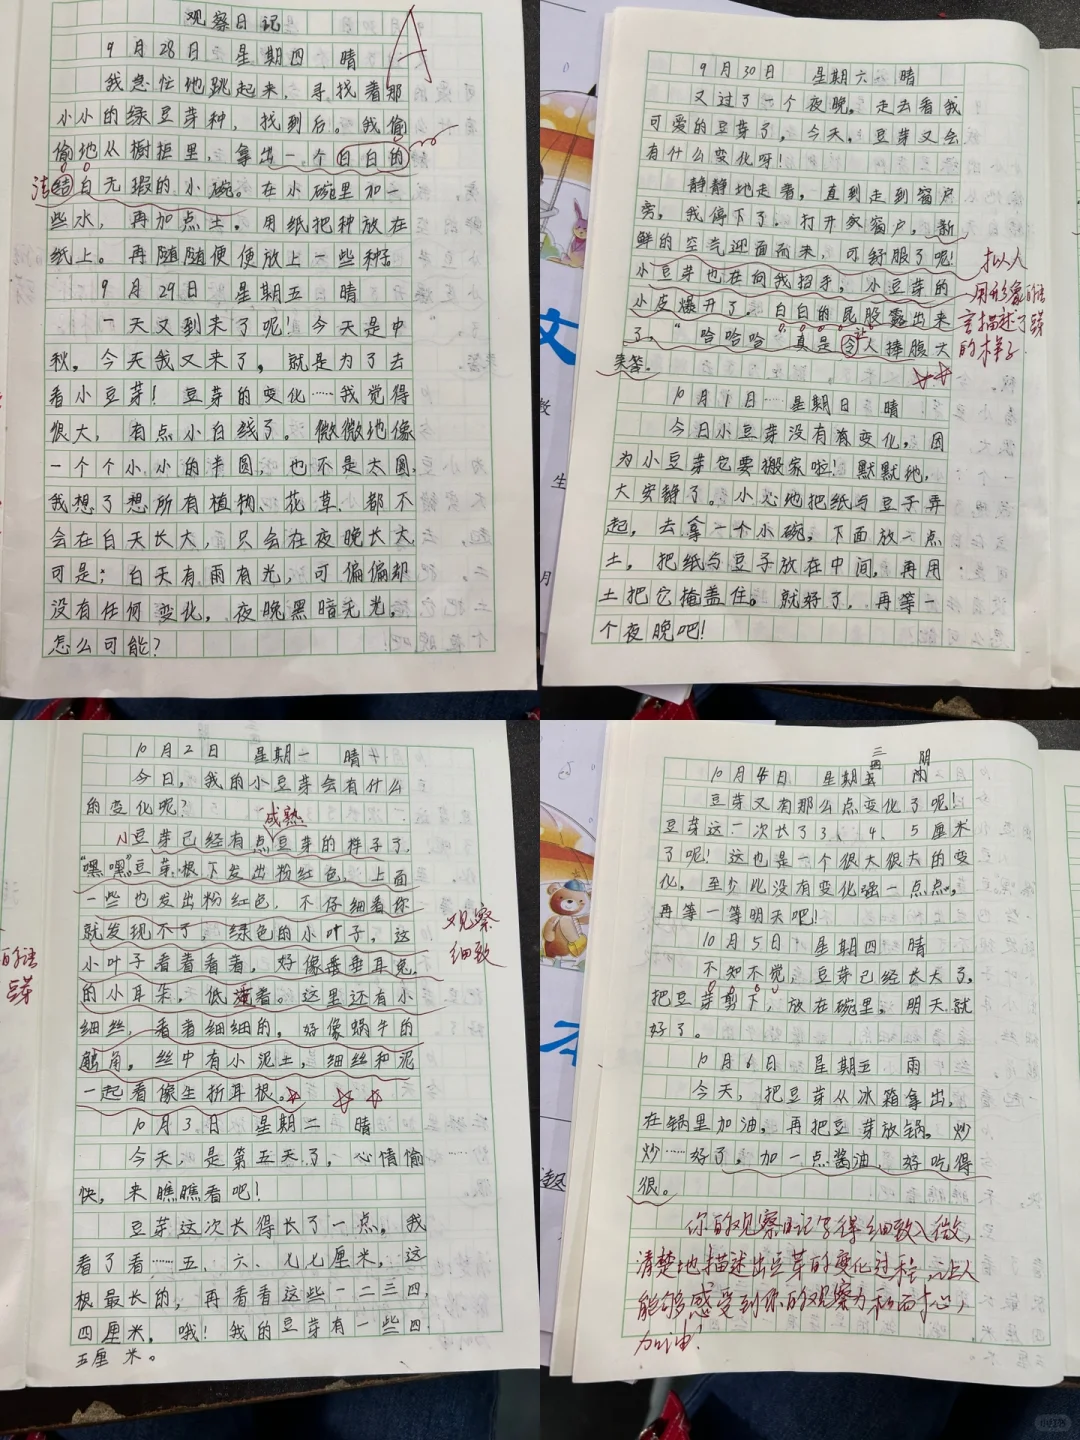 观察日记
A
9月28日 星期四 晴
我急忙地跳起来，寻找着那
小小的绿豆芽种，找到后。我偷
偷地从橱柜里，拿出一个白白的
洁白无瑕的小碗。在小碗里加一
些水，再加点土。用纸把种放在
纸上。再随随便便放上一些种子。
9月29日 星期五 晴
一天又到来了呢！今天是中
秋。今天我又来了，就是为了去
看小豆芽！豆芽的变化……我觉得
很大，有点小白线了。微微地像
一个个小小的半圆，也不是太圆，
我想了想所有植物、花草、都不
会在白天长大，只会在夜晚长大，
可是；白天有雨有光，可偏偏却
没有任何变化，夜晚黑暗无光。
怎么可能？
9月30日 星期六 晴
又过了一个夜晚，走去看我
可爱的豆芽了，今天。豆芽又会
有什么变化呀！
静静地走着，直到走到窗户
旁，我停下了。打开了窗户，新
鲜的空气迎面而来，可舒服了呢！
小豆芽也在向我招手，小豆芽的
小皮爆开了。白白的屁股露出来
了，“哈哈哈，真是令人捧腹大
笑。
拟人
用形象的语
言描述了豆芽
的样子
10月1日 星期日 晴
今日小豆芽没有啥变化，因
为小豆芽它要搬家啦！默默地，
太安静了。小心地把纸与豆子弄
起，去拿一个小碗，下面放一点
土，把纸与豆子放在中间，再用
土把它掩盖住。就好了，再等一
个夜晚吧！
10月2日 星期一 晴
今日，我的小豆芽会有什么
的变化呢？
成熟
小豆芽已经有点豆芽的样子了，
“嘿嘿”豆芽根下发出粉红色，上面
一些也发出粉红色，不仔细看你
就发现不了，绿色的小叶子，这
小叶子看着看着，好像垂垂耳兔
的小耳朵，低着。这里还有小
细丝，看着细细的，好像蜗牛的
触角，丝中有小泥土，细丝和泥
一起看像生折耳根。
观察
细致
的语
豆芽
10月3日 星期二 晴
今天，是第五天了，心情愉
快，来瞧瞧看吧！
豆芽这次长得长了一点，我
看了看……五、六、七七厘米，这
根最长的，再看看这些一二三四，
四厘米，哦！我的豆芽有一些四
五厘米。
10月4日 星期三 阴
豆芽又有那么点变化了呢！
豆芽这一次长了3、4、5厘米
了呢！这也是一个很大很大的变
化，至少比没有变化强一点点，
再等一等明天吧！
10月5日 星期四 晴
不知不觉，豆芽已经长大了，
把豆芽剪下，放在碗里，明天就
好了。
10月6日 星期五 雨
今天，把豆芽从冰箱拿出，
在锅里加油，再把豆芽放锅，炒
炒……好了，加一点酱油，好吃得
很。
你的观察日记写得细致入微，
清楚地描述出豆芽的变化过程，让人
能够感受到你的观察力和耐心，
加油！